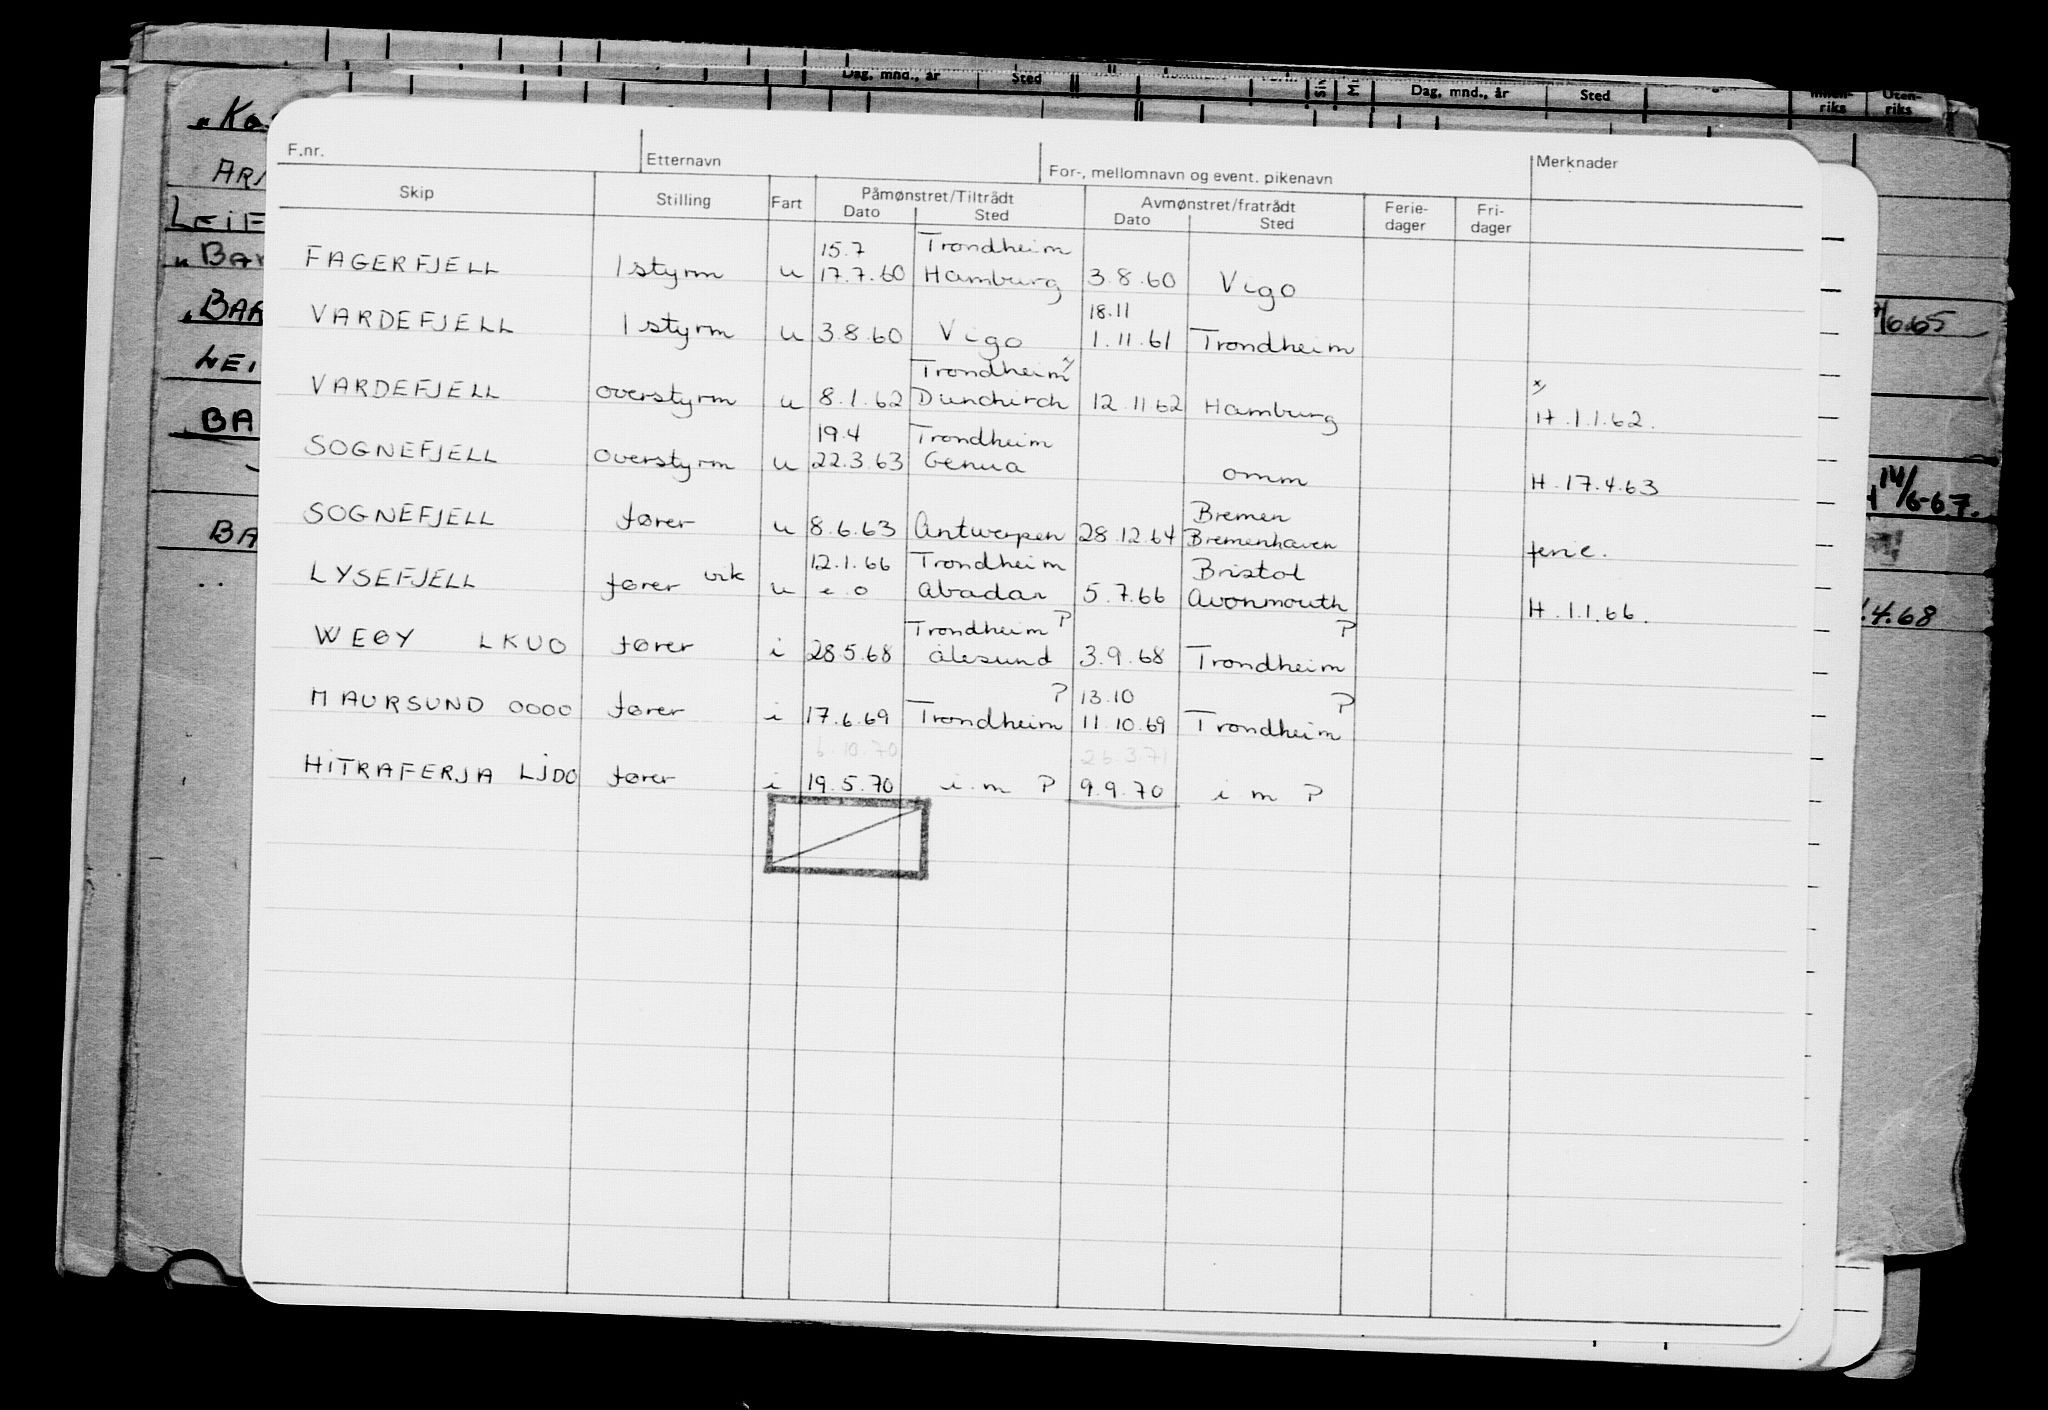 Dag, mnd., år Sted Dag, mnd., år Sted riks Uten-riks
F.nr. Etternavn For-, mellomnavn og event. pikenavn Merknader
Skip Stilling Fart Påmønstret/Tiltrådt Avmønstret/fratrådt Ferie-dager Fri-dager
Dato Sted Dato Sted
15.7 Trondheim
FAGERFJELL 1 styrm u 17.7.60 Hamburg 3.8.60 Vigo
18.11
VARDEFJELL 1 styrm u 3.8.60 Vigo 1.11.61 Trondheim
Trondheim x/ x/
VARDEFJELL overstyrm u 8.1.62 Dunchirch 12.11 62 Hamburg H.1.1.62.
19.4 Trondheim
SOGNEFJELL overstyrm u 22.3.63 Genua omm H.17.4.63
Bremen
SOGNEFJELL fører u 8.6.63 Antwerpen 28.12.64 Bremenhaven ferie.
12.1.66 Trondheim Bristol
LYSEFJELL fører vik u e o Abadan 5.7.66 Avonmouth H.1.1.66.
Trondheim P P
WEØY LKUO fører i 28.5.68 Ålesund 3.9.68 Trondheim
P 13.10 P
MAURSUND 0000 fører i 17.6.69 Trondheim 11.10.69 Trondheim
6.10.70 26.3.71
HITRAFERJA LJDO fører i 19.5.70 i m P 9.9.70 i m P
ARN
LEIF
BAR
BAR
LEI
BA
BA
14/6-67.
.4.68